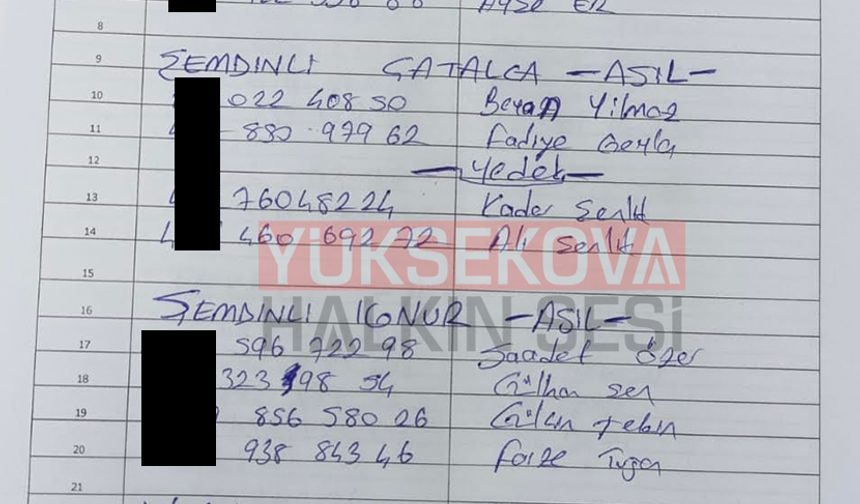 AYŞE ER
8
9 ŞEMDİNLİ ÇATALCA -ASIL-
10 022 408 50 Beyan Yılmaz
11 880 979 62 Fadiye
12 -Yedek-
13 760 482 24 Kader Şenlik
14 460 692 72 Ali Şenlik
YÜKSEKOVA
15
HALKIN SESİ
16 ŞEMDİNLİ KONUR -ASIL-
17 596 722 98 Saadet Özer
18 323 98 54 Gülhan Şen
19 856 580 26 Gülan Tekin
20 938 843 46
21